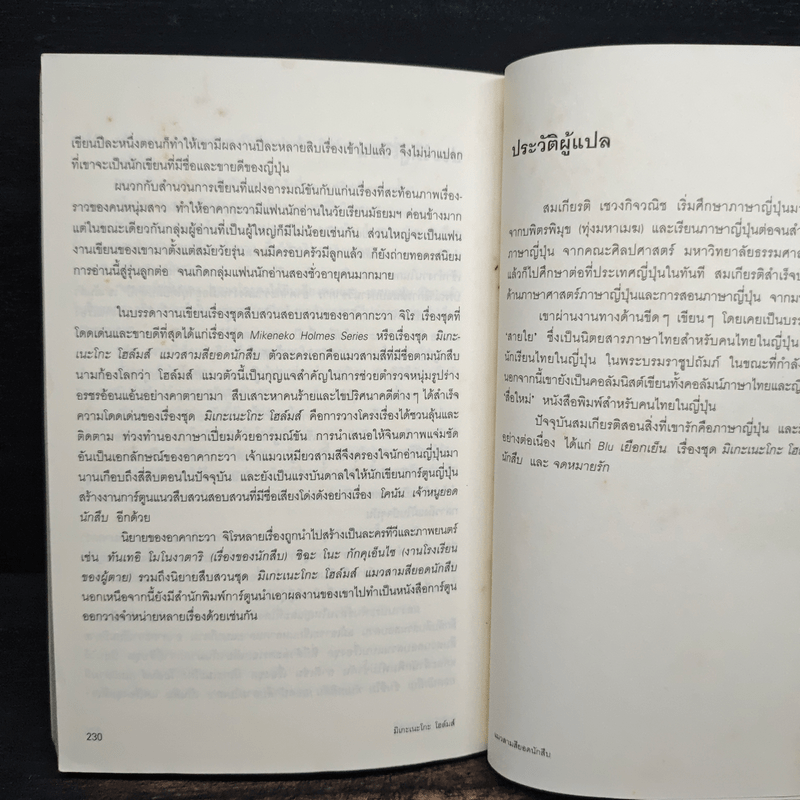 เขียนปีละหนึ่งตอนก็ทำให้เขามีผลงานปีละหลายสิบเรื่องเข้าไปแล้ว จึงไม่น่าแปลก
ที่เขาจะเป็นนักเขียนที่มีชื่อและขายดีของญี่ปุ่น
ผนวกกับสำนวนการเขียนที่แฝงอารมณ์ขันกับแก่นเรื่องที่สะท้อนภาพเรื่อง-
ราวของคนหนุ่มสาว ทำให้อาคากะวามีแฟนนักอ่านในวัยเรียนมัธยมฯ ค่อนข้างมาก
แต่ในขณะเดียวกันกลุ่มผู้อ่านที่เป็นผู้ใหญ่ก็มีไม่น้อยเช่นกัน ส่วนใหญ่จะเป็นแฟน
งานเขียนของเขามาตั้งแต่สมัยวัยรุ่น จนมีครอบครัวมีลูกแล้ว ก็ยังถ่ายทอดรสนิยม
การอ่านนี้สู่รุ่นลูกต่อ จนเกิดกลุ่มแฟนนักอ่านสองชั่วอายุคนมากมาย
ในบรรดางานเขียนเรื่องชุดสืบสวนสอบสวนของอาคากะวา จิโร เรื่องชุดที่
โดดเด่นและขายดีที่สุดได้แก่เรื่องชุด Mikeneko Holmes Series หรือเรื่องชุด มิเกะ-
เนะโกะ โฮล์มส์ แมวสามสียอดนักสืบ ตัวละครเอกคือแมวสามสีที่มีชื่อตามนักสืบ
นามก้องโลกว่า โฮล์มส์ แมวตัวนี้เป็นกุญแจสำคัญในการช่วยตำรวจหนุ่มรูปร่าง
อรชรอ้อนแอ้นอย่างคาตายามา สืบเสาะหาคนร้ายและไขปริศนาคดีต่าง ๆ ได้สำเร็จ
ความโดดเด่นของเรื่องชุด มิเกะเนะโกะ โฮล์มส์ คือการวางโครงเรื่องได้ชวนลุ้นและ
ติดตาม ท่วงทำนองภาษาเปี่ยมด้วยอารมณ์ขัน การนำเสนอให้จินตภาพแจ่มชัด
อันเป็นเอกลักษณ์ของอาคากะวา เจ้าแมวเหมียวสามสีจึงครองใจนักอ่านญี่ปุ่นมา
นานเกือบถึงสี่สิบตอนในปัจจุบัน และยังเป็นแรงบันดาลใจให้นักเขียนการ์ตูนญี่ปุ่น
สร้างงานการ์ตูนแนวสืบสวนสอบสวนที่มีชื่อเสียงโด่งดังอย่างเรื่อง โคนัน เจ้าหนูยอด
นักสืบ อีกด้วย
นิยายของอาคากะวา จิโรหลายเรื่องถูกนำไปสร้างเป็นละครทีวีและภาพยนตร์
เช่น ทันเทอิ โมโนงาตาริ (เรื่องของนักสืบ) ชิฉะ โนะ กักคุเอ็นไซ (งานโรงเรียน
ของผู้ตาย) รวมถึงนิยายสืบสวนชุด มิเกะเนะโกะ โฮล์มส์ แมวสามสียอดนักสืบ
นอกเหนือจากนี้ยังมีสำนักพิมพ์การ์ตูนนำเอาผลงานของเขาไปทำเป็นหนังสือการ์ตูน
ออกวางจำหน่ายหลายเรื่องด้วยเช่นกัน
230
มิเกะเนะโกะ โฮล์มส์
ประวัติผู้แปล
สมเกียรติ เชวงกิจวณิช เริ่มศึกษาภาษาญี่ปุ่นม
จากบพิตรพิมุข (ทุ่งมหาเมฆ) และเรียนภาษาญี่ปุ่นต่อจนสำ
ภาษาญี่ปุ่น จากคณะศิลปศาสตร์ มหาวิทยาลัยธรรมศา
แล้วก็ไปศึกษาต่อที่ประเทศญี่ปุ่นในทันที สมเกียรติสำเร็จป
ด้านภาษาศาสตร์ภาษาญี่ปุ่นและการสอนภาษาญี่ปุ่น จากม
เขาผ่านงานทางด้านขีดๆ เขียนๆ โดยเคยเป็นบรร
'สายใย' ซึ่งเป็นนิตยสารภาษาไทยสำหรับคนไทยในญี่ปุ่น
นักเรียนไทยในญี่ปุ่น ในพระบรมราชูปถัมภ์ ในขณะที่กำลัง
นอกจากนี้เขายังเป็นคอลัมนิสต์เขียนทั้งคอลัมน์ภาษาไทยและญี่
'สื่อใหม่' หนังสือพิมพ์สำหรับคนไทยในญี่ปุ่น
ปัจจุบันสมเกียรติสอนสิ่งที่เขารักคือภาษาญี่ปุ่น และ
อย่างต่อเนื่อง ได้แก่ Blu เยือกเย็น เรื่องชุด มิเกะเนะโกะ โฮ
นักสืบ และ จดหมายรัก
แมวสามสียอดนักสืบ